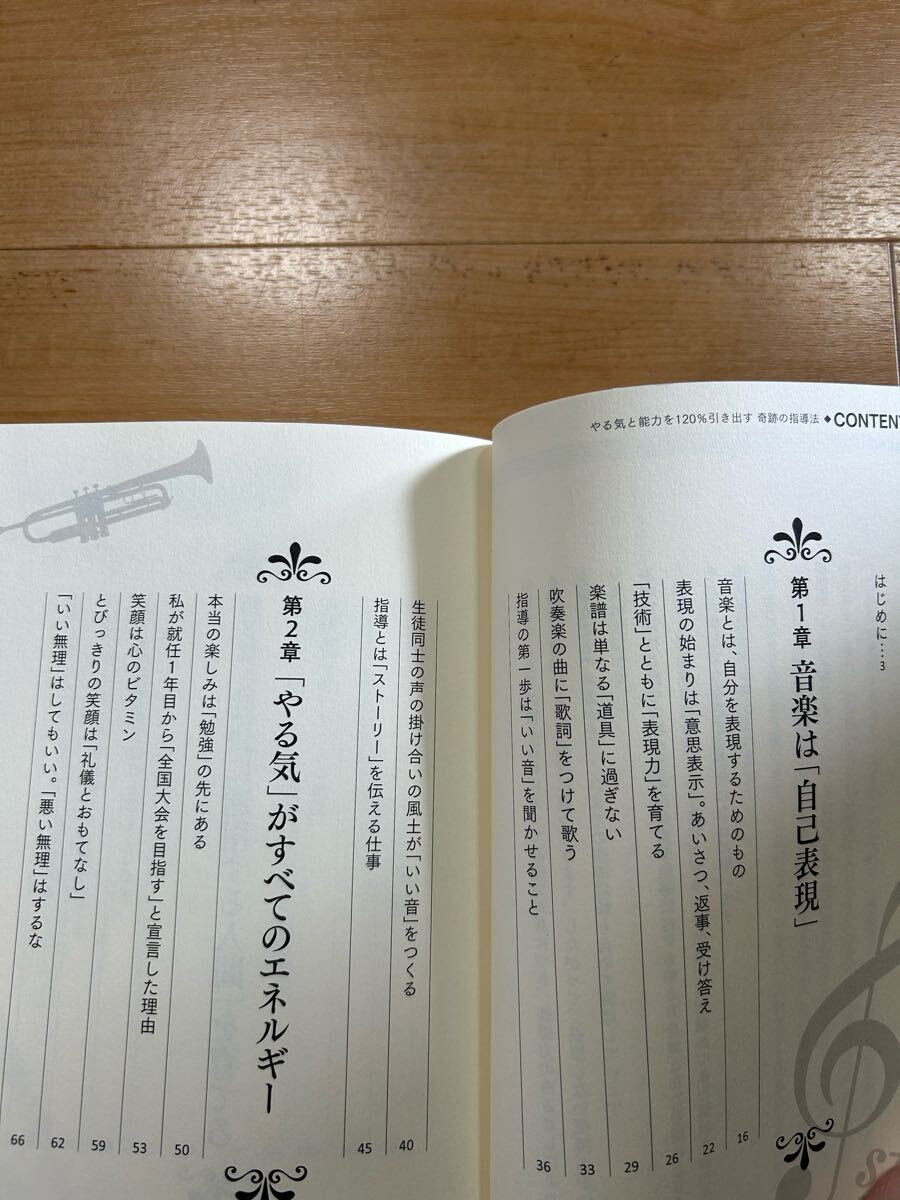 やる気と能力を120%引き出す 奇跡の指導法 ◆CONTENT
はじめに…3
第1章 音楽は「自己表現」
音楽とは、自分を表現するためのもの 16
表現の始まりは「意思表示」。あいさつ、返事、受け答え 22
「技術」とともに「表現力」を育てる 26
楽譜は単なる「道具」に過ぎない 29
吹奏楽の曲に「歌詞」をつけて歌う 33
指導の第一歩は「いい音」を聞かせること 36
生徒同士の声の掛け合いの風土が「いい音」をつくる 40
指導とは「ストーリー」を伝える仕事 45
第2章 「やる気」がすべてのエネルギー
本当の楽しみは「勉強」の先にある 50
私が就任1年目から「全国大会を目指す」と宣言した理由 53
笑顔は心のビタミン 59
とびっきりの笑顔は「礼儀とおもてなし」 62
「いい無理」はしてもいい。「悪い無理」はするな 66